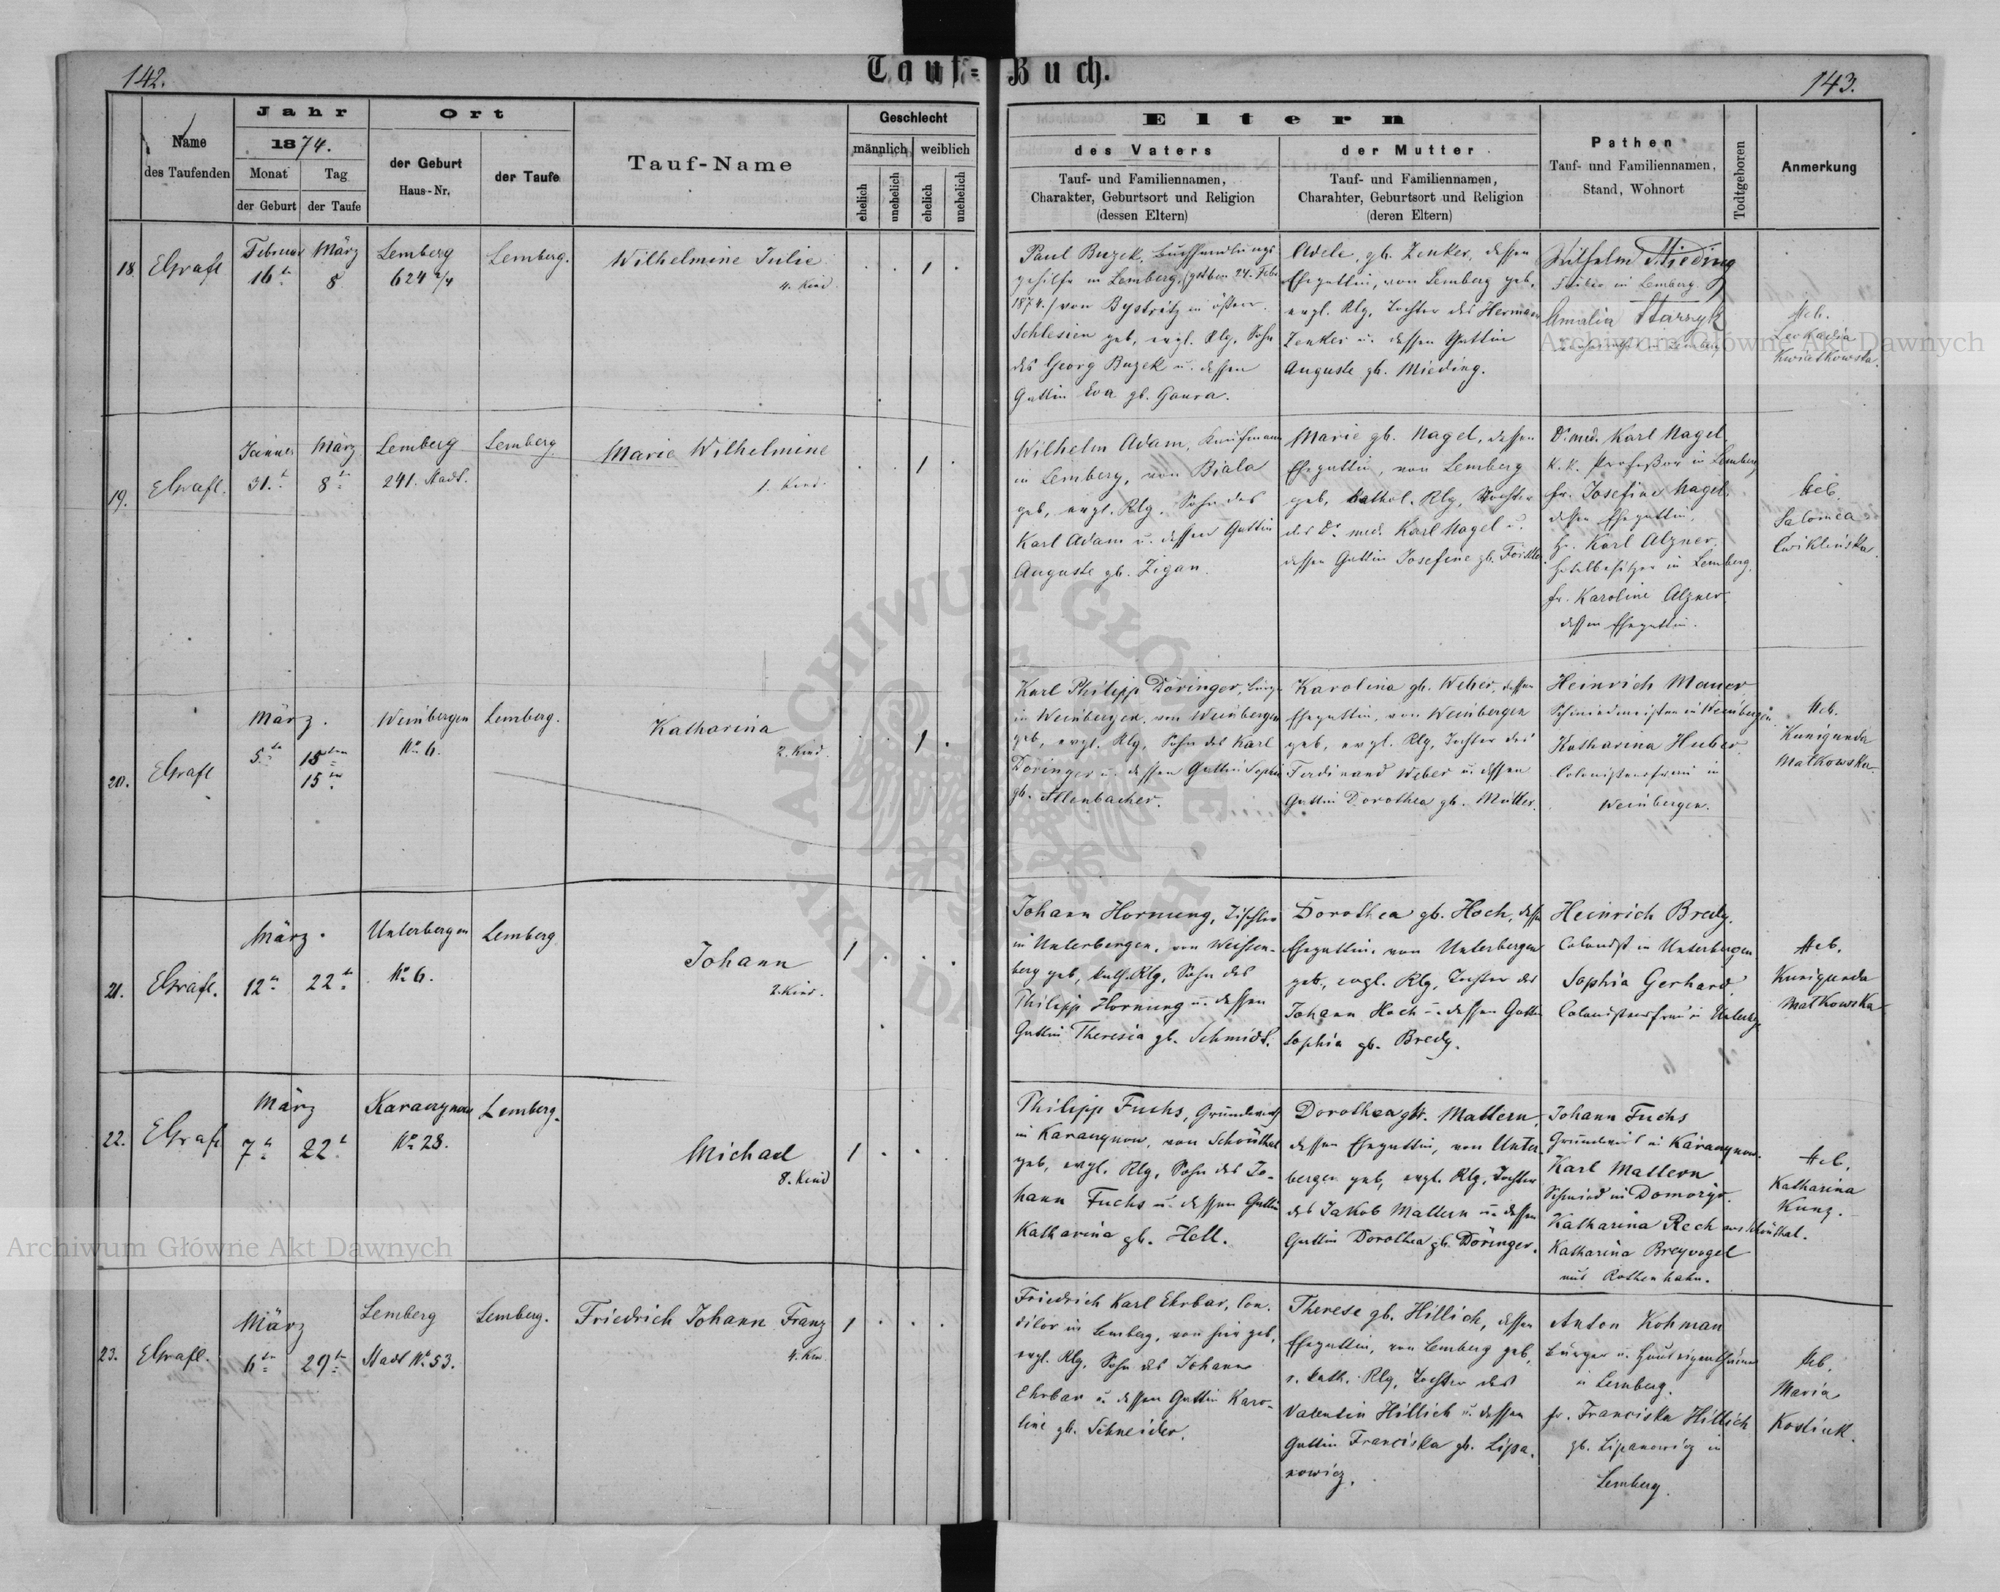 142.
Tauf-Buch.
143.
Name
des Taufenden
Jahr
1874.
Monat
Tag
der Geburt
der Taufe
Ort
der Geburt
Haus-Nr.
der Taufe
Tauf-Name
Geschlecht
männlich
weiblich
ehelich
unehelich
ehelich
unehelich
Eltern
des Vaters
Tauf- und Familiennamen,
Charakter, Geburtsort und Religion
(dessen Eltern)
der Mutter
Tauf- und Familiennamen,
Charahter, Geburtsort und Religion
(deren Eltern)
Pathen
Tauf- und Familiennamen,
Stand, Wohnort
Todtgeboren
Anmerkung
18.
Februar
März
16
8
Lemberg
624 2/4
Lemberg.
Wilhelmine Julie
4. Kind.
1
Paul Buzek, Buchhandlungs
gehilfe in Lemberg, (gestorben 24. Feb.
1874.) von Bystritz in österr.
Schlesien geb, evgl. Rlg, Sohn
des Georg Buzek u. dessen
Gattin Eva gb. Gaura.
Adele, gb. Zenker, dessen
Ehegattin, von Lemberg geb,
evgl. Rlg, Tochter des Herman
Zenker u. dessen Gattin
Auguste gb. Mieding.
Wilhelm Mieding
in Lemberg.
Amalia Starzyk
Heb.
Leokadia
Kwiatkowska.
19.
Jänner
März
31.
8
Lemberg
241. Stadt.
Lemberg
Marie Wilhelmine
1. Kind.
1
Wilhelm Adam, Kaufmann
in Lemberg, von Biala
geb, evgl. Rlg. Sohn des
Karl Adam u. dessen Gattin
Auguste gb. Zigan.
Marie gb. Nagel, dessen
Ehegattin, von Lemberg
geb, kathol. Rlg, Tochter
des Dr. med. Karl Nagel u.
dessen Gattin Josefine gb.
Dr. med. Karl Nagel
k. k. Professor in Lemberg
fr. Josefine Nagel
dessen Ehegattin,
H. Karl Alzner,
Hotelbesitzer in Lemberg.
fr. Karoline Alzner
dessen Ehegattin.
Heb.
Salomea
Cwiklińska.
20.
März.
5
15
15
Weinbergen
No 6.
Lemberg.
Katharina
2. Kind.
1
Karl Philipp Döringer,
in Weinbergen, von Weinbergen
geb, evgl. Rlg, Sohn des Karl
Döringer u. dessen Gattin Sophia
gb. Allenbacher.
Karolina gb. Weber, dessen
Ehegattin, von Weinbergen
geb, evgl. Rlg, Tochter des
Ferdinand Weber u. dessen
Gattin Dorothea gb. Müller.
Heinrich Mauer
Schmiedmeister in Weinbergen.
Katharina Huber
Colonistensfrau in
Weinbergen.
Heb.
Kunigunda
Matkowska.
21.
März.
12
22
Unterbergen
No 6.
Lemberg
Johann
2. Kind.
1
Johann Hornung, Tischler
in Unterbergen, von Weissen-
berg geb, kath. Rlg, Sohn des
Philipp Hornung u. dessen
Gattin Theresia gb. Schmidt.
Dorothea gb. Hoch, dessen
Ehegattin, von Unterbergen
geb, evgl. Rlg, Tochter des
Johann Hoch u. dessen Gattin
Sophia gb. Bredy.
Heinrich Bredy.
Colonist in Unterbergen
Sophia Gerhard
Colonistensfrau in
Heb.
Kunigunda
Matkowska
22.
März
7
22
No 28.
Lemberg.
Michael
8. Kind
1
Philipp Fuchs, Grundwirth
in, von Schönthal
geb, evgl. Rlg, Sohn des Jo-
hann Fuchs u. dessen Gattin
Katharina gb. Hell.
Dorothea gb. Mallern,
dessen Ehegattin, von Unter-
bergen geb, evgl. Rlg, Tochter
des Jakob Mallern u. dessen
Gattin Dorothea gb. Döringer.
Johann Fuchs
Grundwirt in
Karl Mallern
Schmied in
Katharina Rech aus Schönthal.
Katharina Breyvogel
aus Rottenhahn.
Heb.
Katharina
Kunz.
23.
März
6
29
Lemberg
Stadt No 53.
Lemberg.
Friedrich Johann Franz
4. Kin
1
Friedrich Karl Ehrbar, Con-
ditor in Lemberg, von hier geb,
evgl. Rlg, Sohn des Johann
Ehrbar u. dessen Gattin Karo-
line gb. Schneider.
Therese gb. Hillich, dessen
Ehegattin, von Lemberg geb,
r. kath. Rlg, Tochter des
Valentin Hillich u. dessen
Gattin Franciska gb. Lipa-
nowicz.
Anton Kohman
Bürger u. Hauseigenthümer
in Lemberg.
fr. Franciska Hillich
gb. Lipanowicz in
Lemberg.
Heb.
Maria
Archiwum Główne Akt Dawnych
Archiwum Główne Akt Dawnych
ARCHIWUM GŁÓWNE AKT DAWNYCH